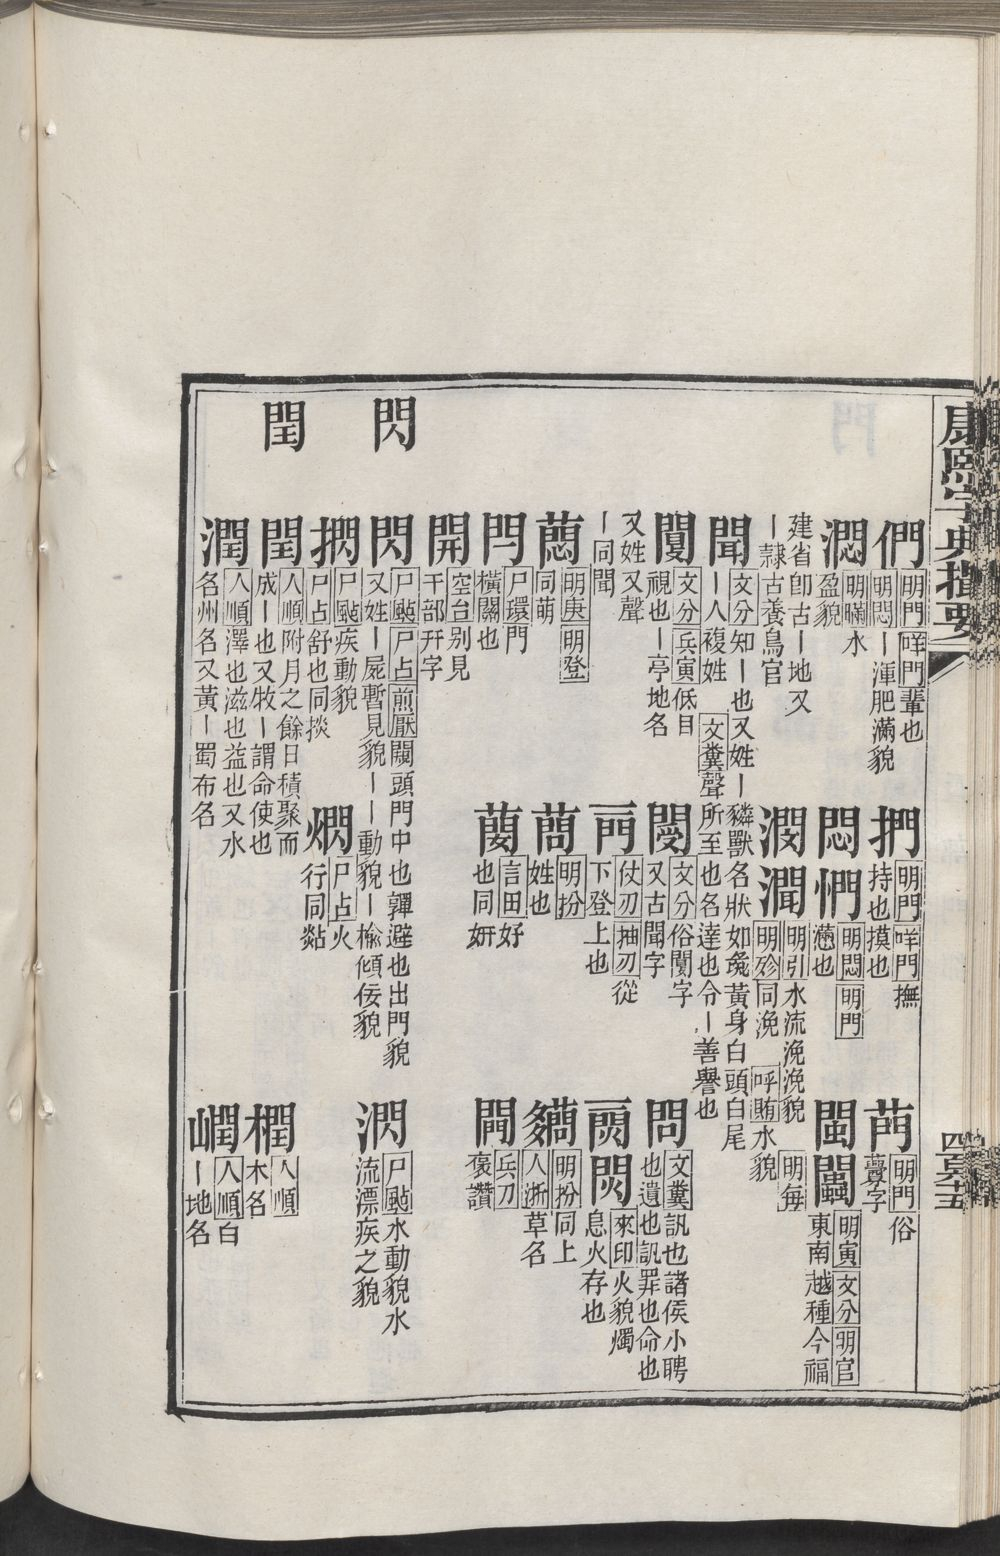 康熙字典撮要
四百六十五
們 明門 咩門 輩也 明悶 ｜渾肥滿貌
捫 明門 咩門 撫持也摸也
菛 明門 俗虋字
懣 明瞞 水盈貌
悶 㥃 明悶 明門 懣也
閩 明寅 文分 明官 東南越種今福建省卽古｜地又｜隸古養鳥官
潣 明引 水流浼浼貌 明殄 同浼 呼賄 水貌 明每
聞 文分 知｜也又姓｜獜獸名狀如彘黃身白頭白尾｜人複姓 文糞 聲所至也名達也令｜善譽也又姓又聲｜同聞
閺 文分 兵寅 低目視也｜亭地名
閿 文分 俗闅字又古聞字
問 文糞 訊也諸侯小聘也遺也訊罪也命也
仗刃 抽刃 從下登上也
來印 火貌燭息火存也
明庚 明登 同萌
明扮 姓也
明扮 同上 人浙 草名
閂 尸環 門橫關也
言田 好也同妍
兵刀 褒讚
開 空台 别見干部幵字
閃
閃 尸颭 尸占 煎厭 闚頭門中也嚲避也出門貌又姓｜屍暫見貌｜｜動貌｜楡傾佞貌
㴸 尸颭 水動貌水流漂疾之貌
捫 尸颭 疾動貌 尸占 舒也同掞
尸占 火行同㷔
閏
閏 人順 附月之餘日積聚而成｜也又牧｜謂命使也
橍 人順 木名
潤 人順 澤也滋也益也又水名州名又黃｜蜀布名
人順 白｜地名